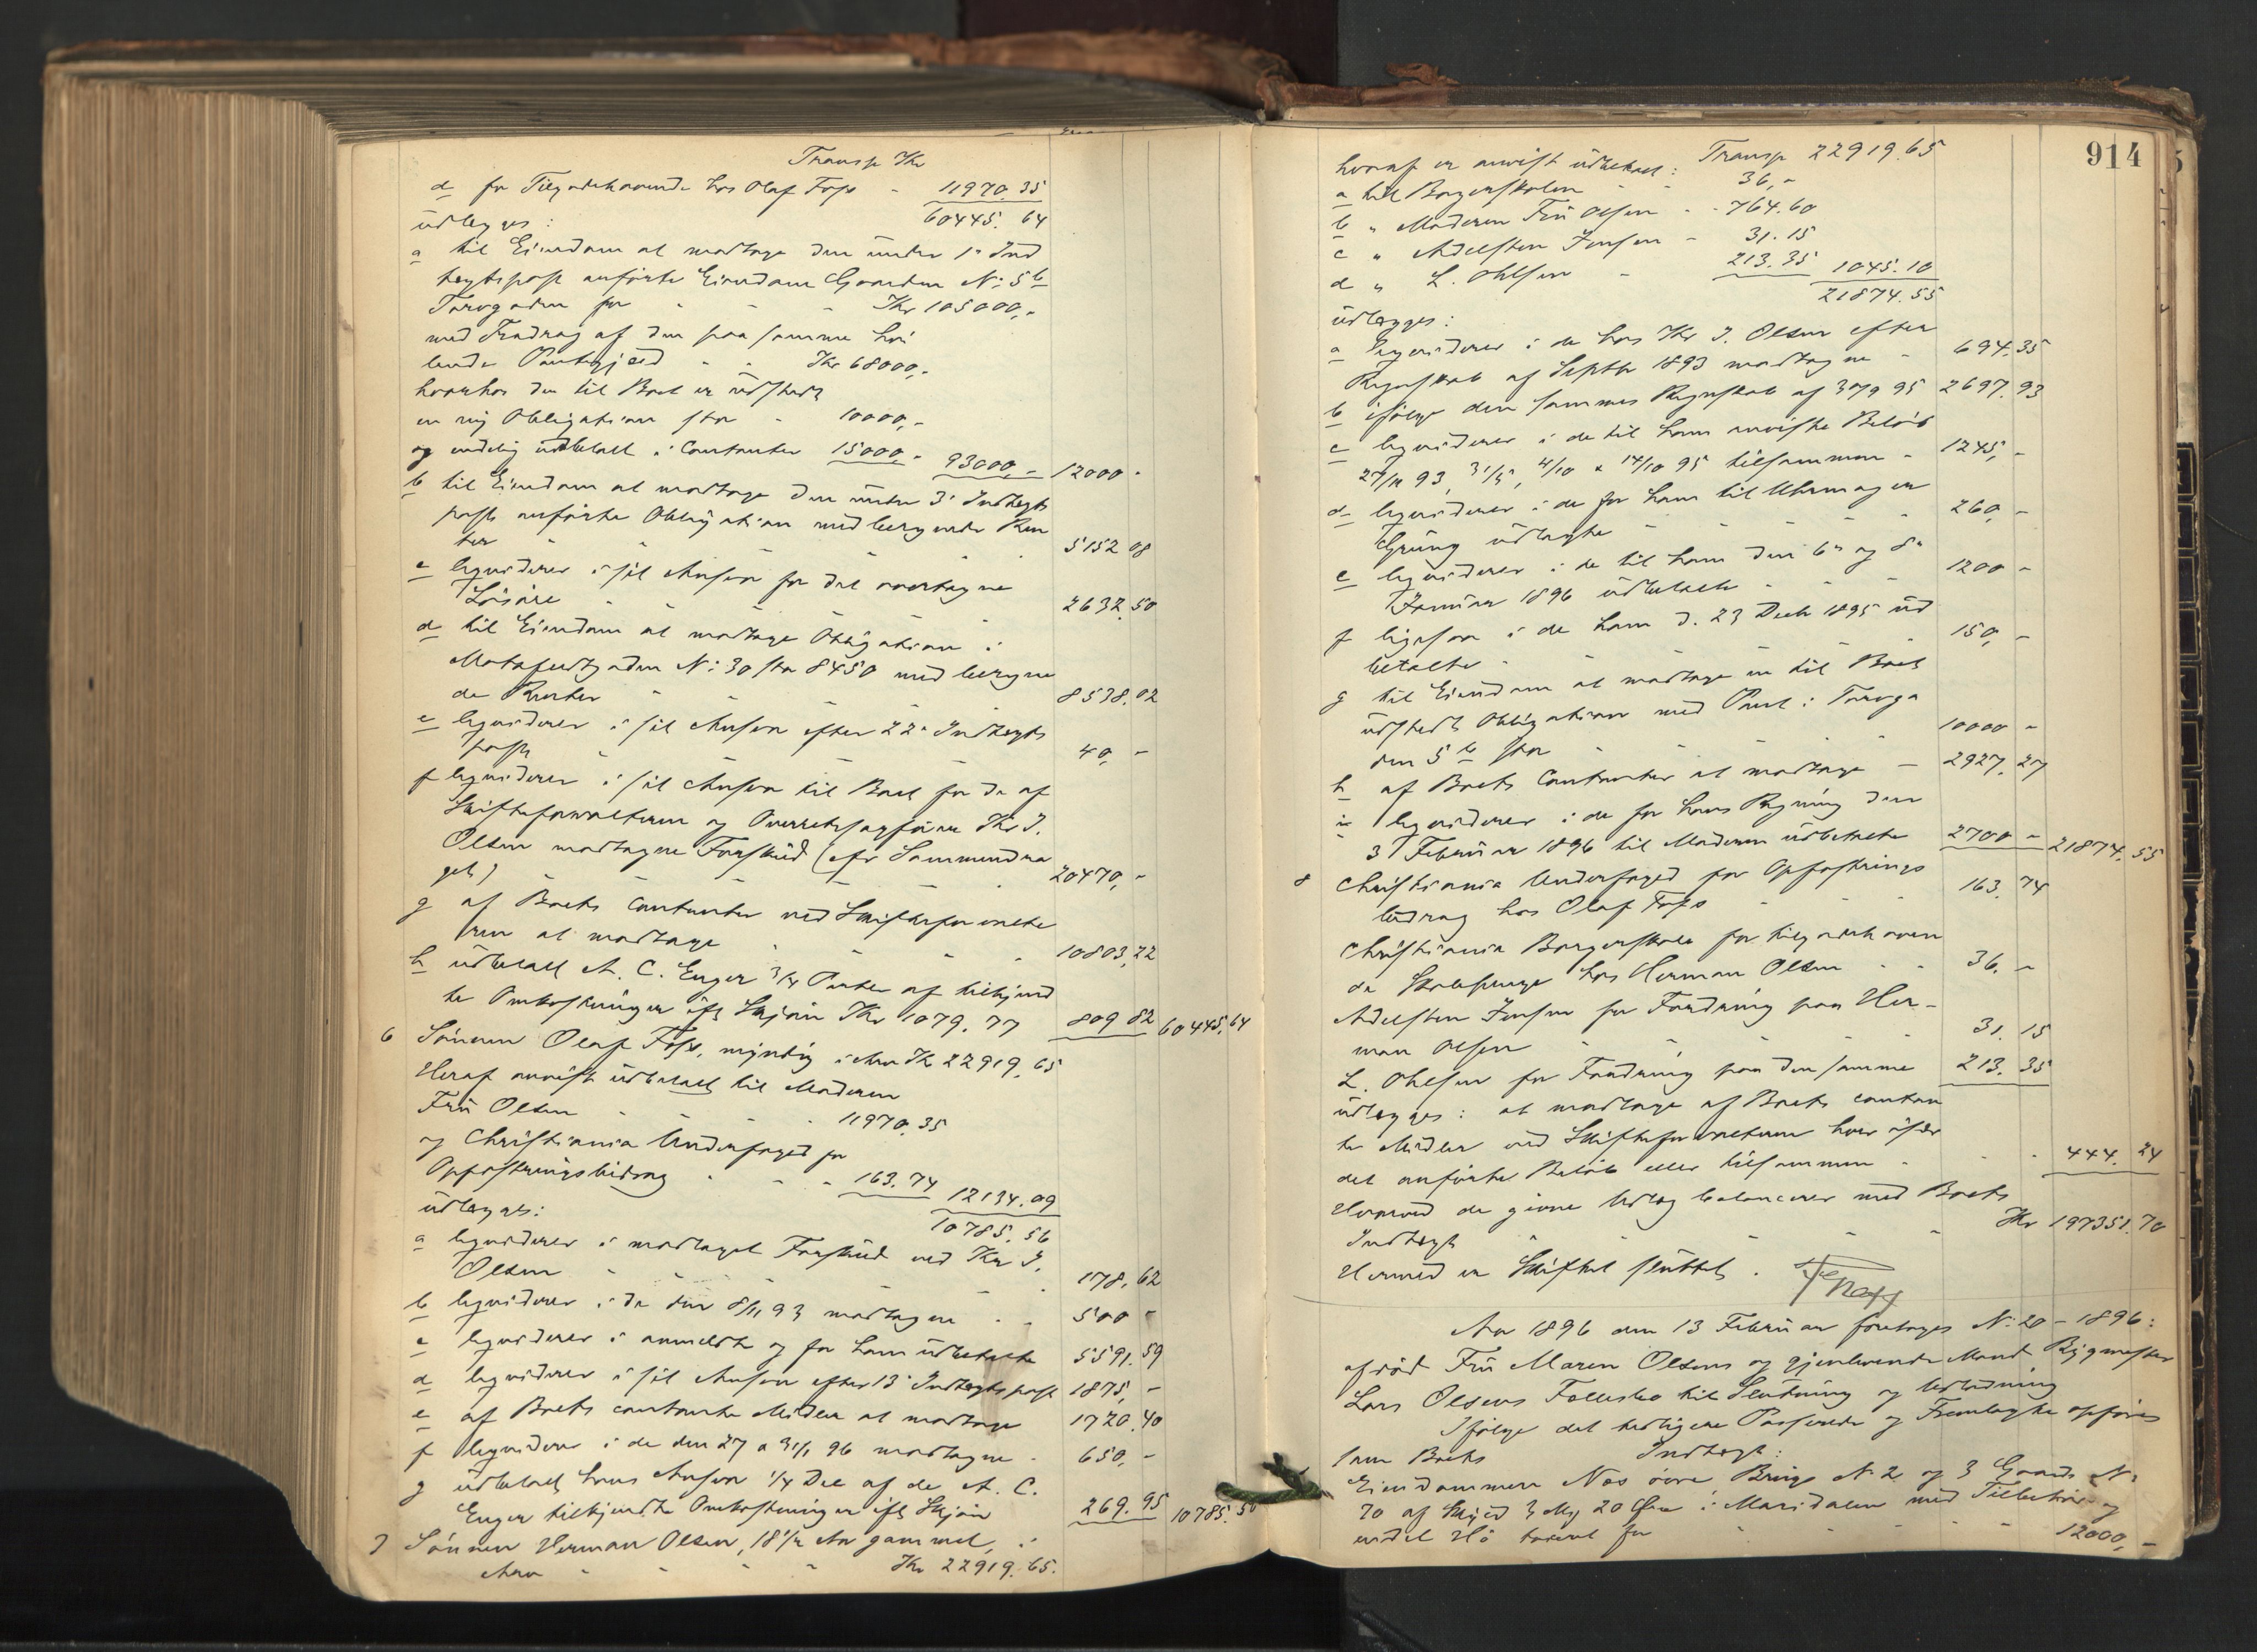 Transp Kr
d for Tilgodehavende hos Olaf Foss - 11970.35
udlægges: 60445.64
a til Eiendom at modtage den under 1ste Ind
tægtspost anførte Eiendom Gaarden No 5b
Torvgaden for - - Kr 105000,-
med Fradrag af den paa samme hvi
lende Pantegjæld - - Kr 68000,-
hvorhos den til Boet er udstedt
en ny Obligation stor - 10000,-
og endelig udbetalt i Contanter 15000,- 93000,- 12000 -
b til Eiendom at modtage den under 3' Indtægts
post anførte Obligation med beregnede Ren
ter - - - 5152 08
c liqviderer i sit Ansvar for det overtagne
Løsøre - - - 2632.50
d til Eiendom at modtage Obligation i
No 30 stor 8450 med beregne
de Renter - - 8538.02
e liqviderer i sit Ansvar efter 22' Indtægts
post - - - 40,-
f liqviderer i sit Ansvar til Boet for de af
Skifteforvalteren og Overretssagfører Kr J.
Olsen modtagne Forskud (cfr Sammendra
get) - - - 20470,-
g af Boets Contanter ved Skifteforvalte
ren at modtage - - - 10803,22
h udbetalt A. C. Enger 3/4 Parter af tilkjend
te Omkostninger ifl Skjøn Kr 1079.77 809 82 60445.64
6 Sønnen Olaf Foss, myndig i Arv Kr 22919.65
Heraf anvist udbetalt til Moderen
Fru Olsen - - - 11970.35
og Christiania Underfoged for
Opfostringsbidrag - - - 163.74 12134.09
udlægges: 10785.56
a liqviderer i modtaget Forskud ved Kr J.
Olsen - - - 178.62
b liqviderer i de den 8/11 93 modtagne - - 500 -
c liqviderer i anmeldte og for ham udbetalte 5591.59
d liqviderer i sit Ansvar efter 13' Indtægtspost 1875,-
e af Boets contante Midler at modtage 1720.40
f liqviderer i de den 27 & 31/1 96 modtagne - 650,-
g udbetalt hans Ansvar 1/4 Del af de A. C.
Enger tilkjendte Omkostninger ifl Skjøn 269.95 10785.56
7 Sønnen Herman Olsen, 18 1/2 Aar gammel, i
Arv - - - - Kr 22919.65.
914
hvoraf er anvist udbetalt: Transp 22919.65
a til Borgerskolen - - 36,-
b " Moderen Fru Olsen - - 764.60
c " Adelsten Jensen - 31.15
d " L. Ohlsen - 213.35 1045.10
21874.55
udlægges:
a liqviderer i de hos Kr J. Olsen efter
Regnskab af Septbr 1893 modtagne - 694.35
b ifølge den sammes Regnskab af 30/9 95 2697.93
c liqviderer i de til ham anviste Beløb
27/11 93, 31/5, 4/10 & 14/10 95 tilsammen - 1245,-
d liqviderer i de for ham til Uhrmager
Grüng udlagte - - - 260,-
e liqviderer i de til ham den 6te og 8de
Januar 1896 udbetalte - - - 1200 -
f ligesaa i de ham d. 23 Decbr 1895 ud
betalte - - - 150,-
g til Eiendom at modtage en til Boet
udstedt Obligation med Pant i Torvga
den 5 b stor - - - 10000 -
h af Boets Contanter at modtage - 2927.27
i liqviderer i de for hans Regning den
3 Februar 1896 til Moderen udbetalte 2700 - 21874.55
8 Christiania Underfoged for Opfostrings
bidrag hos Olaf Foss - - 163.74
Christiania Borgerskole for tilgodehaven
de Skolepenge hos Herman Olsen - - 36.-
Adelsten Jensen for Fordring paa Her-
man Olsen - - - 31.15
L. Ohlsen for Fordring paa den samme 213.35
udlægges: at modtage af Boets contan
te Midler ved Skifteforvalteren hver især
det anførte Beløb eller tilsammen - - 444.24
Hvorved de givne Udlæg balancerer med Boets
Indtægt - - - Kr 197351.70
Hermed er Skiftet sluttet.
Aar 1896 den 13 Februar foretoges No 20 - 1896:
afdød Fru Maren Olsens og gjenlevende Mand Bygmester
Lars Olsens Fællesbo til Slutning og Udlodning
Ifølge det tidligere Passerede og Fremlagte opføres
som Boets Indtægt:
Eiendommen Næs øvre Brug No 2 og 3 Gaards No
70 af Skyld 3 Mk 20 Øre i Maridalen med Tilbehør og
endel Hø taxeret for - - - 12000,-